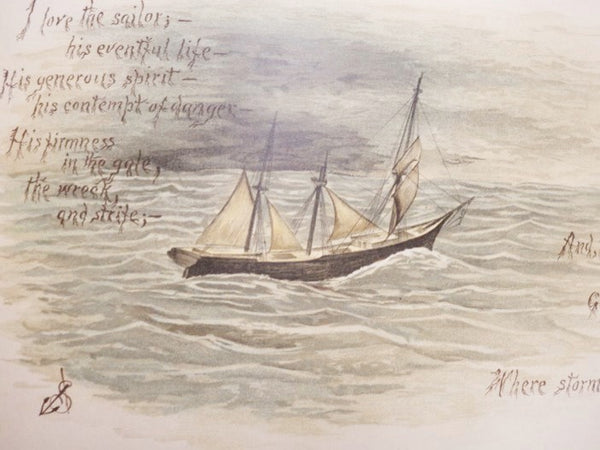 I love the sailor; —
his eventful life —
His generous spirit —
his contempt of danger —
His firmness
in the gale,
the wreck,
and strife; —
And,
G
Where storm